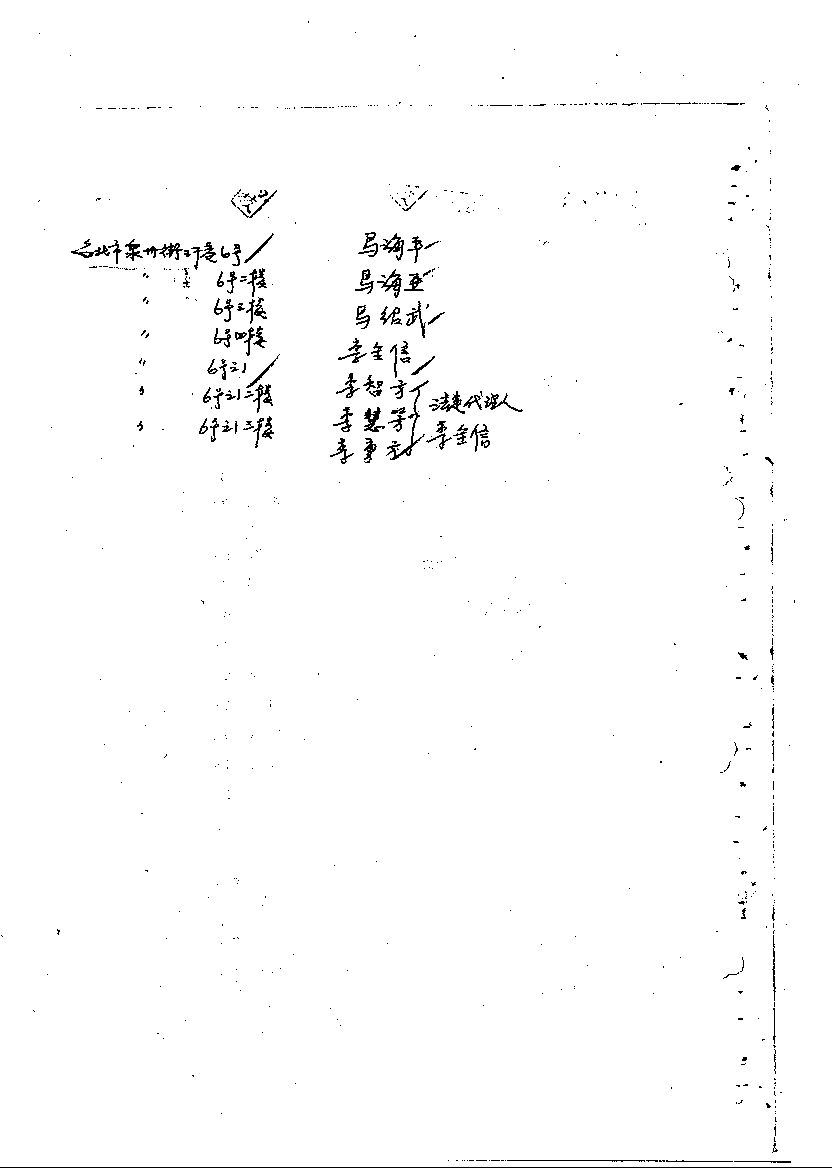 台北市泉州街2巷6号 马海平
〃 6号二楼 马海亚
〃 6号三楼 马绍武
〃 6号四楼 李金信
〃 6号之1 李智方
〃 6号之1二楼 李慧芳 法定代理人
〃 6号之1三楼 李秉方 李金信